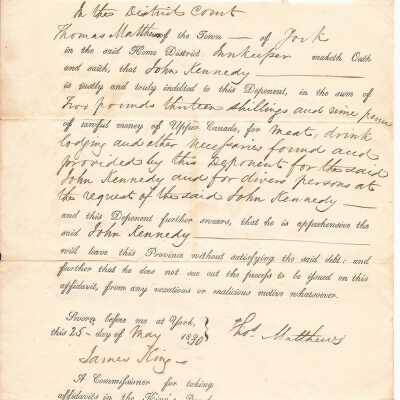 In the District Court
Thomas Matthews of the Town — of York
in the said Home District Innkeeper maketh Oath
and saith, that John Kennedy —
is justly and truly indebted to this Deponent, in the sum of
Two pounds thirteen shillings and nine pence
of lawful money of Upper Canada, for Meat, drink
lodging and other Necessaries found and
provided by this Deponent for the said
John Kennedy and for divers persons at
the request of the said John Kennedy —
and this Deponent further swears, that he is apprehensive the
said John Kennedy —
will leave this Province without satisfying the said debt: and
further that he does not sue out the process to be issued on this
affidavit, from any vexatious or malicious motive whatsoever.
Sworn before me at York,
this 25 day of May 1830
Thos Matthews
James King
A Commissioner for taking
affidavits in the King's Bench